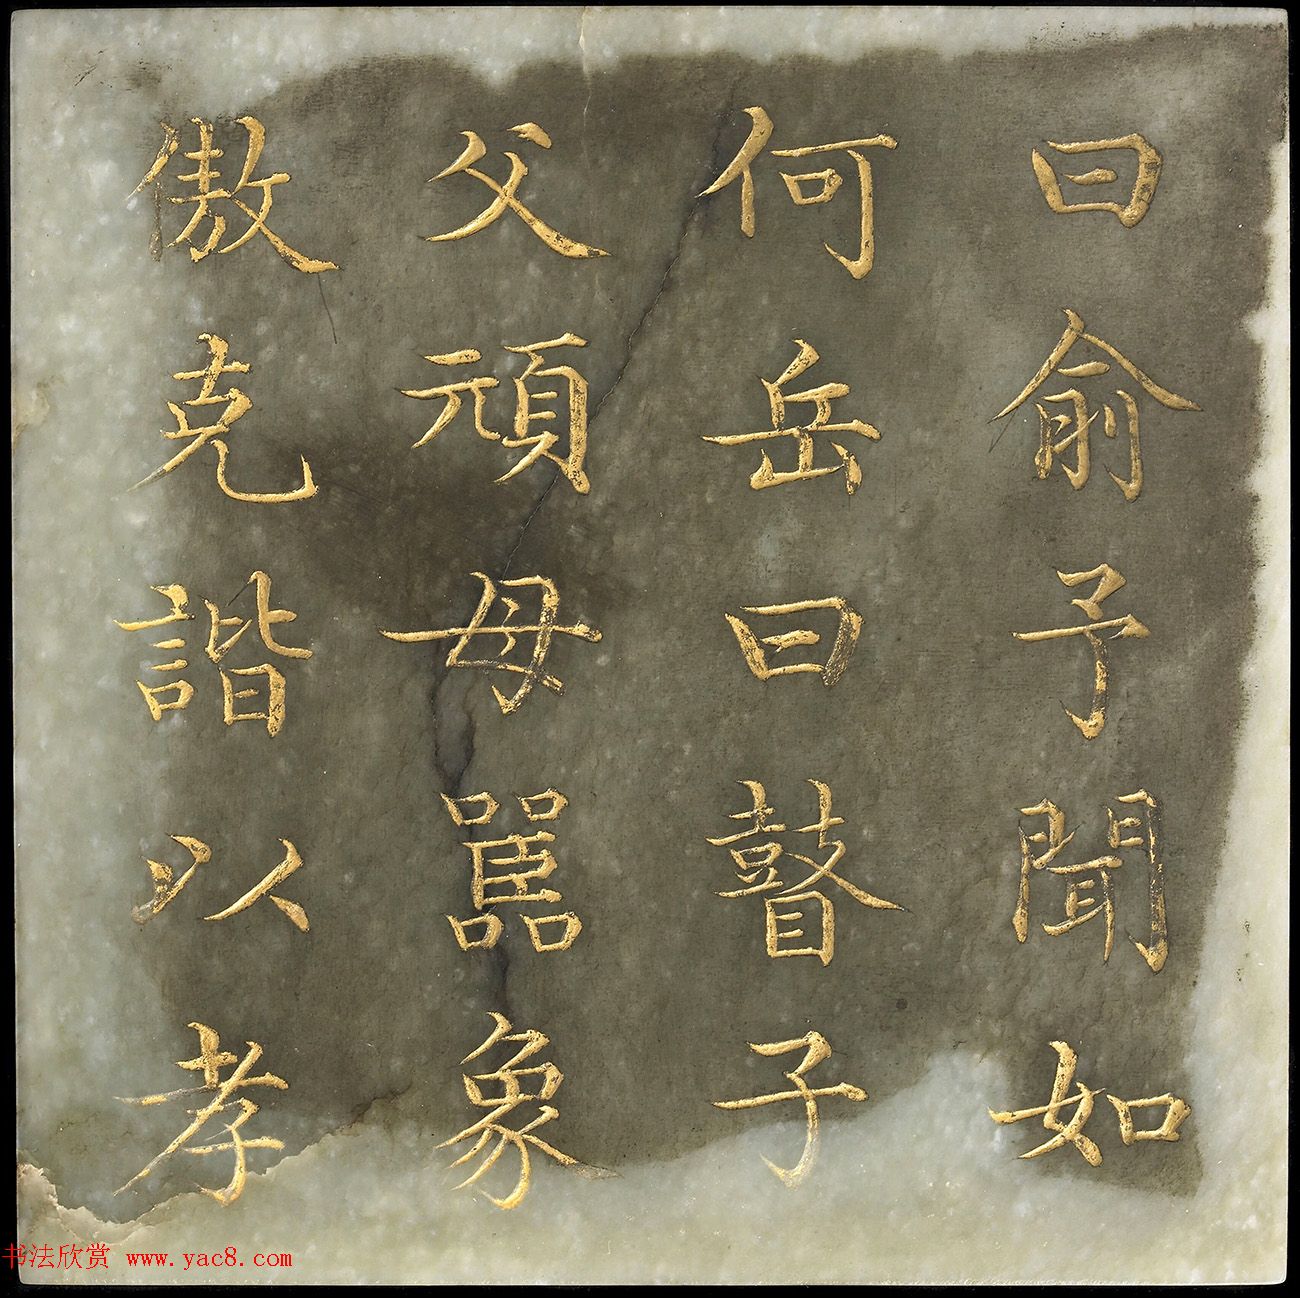 曰俞予聞如
何岳曰瞽子
父頑母嚚象
傲克諧以孝
书法欣赏 www.yac8.com